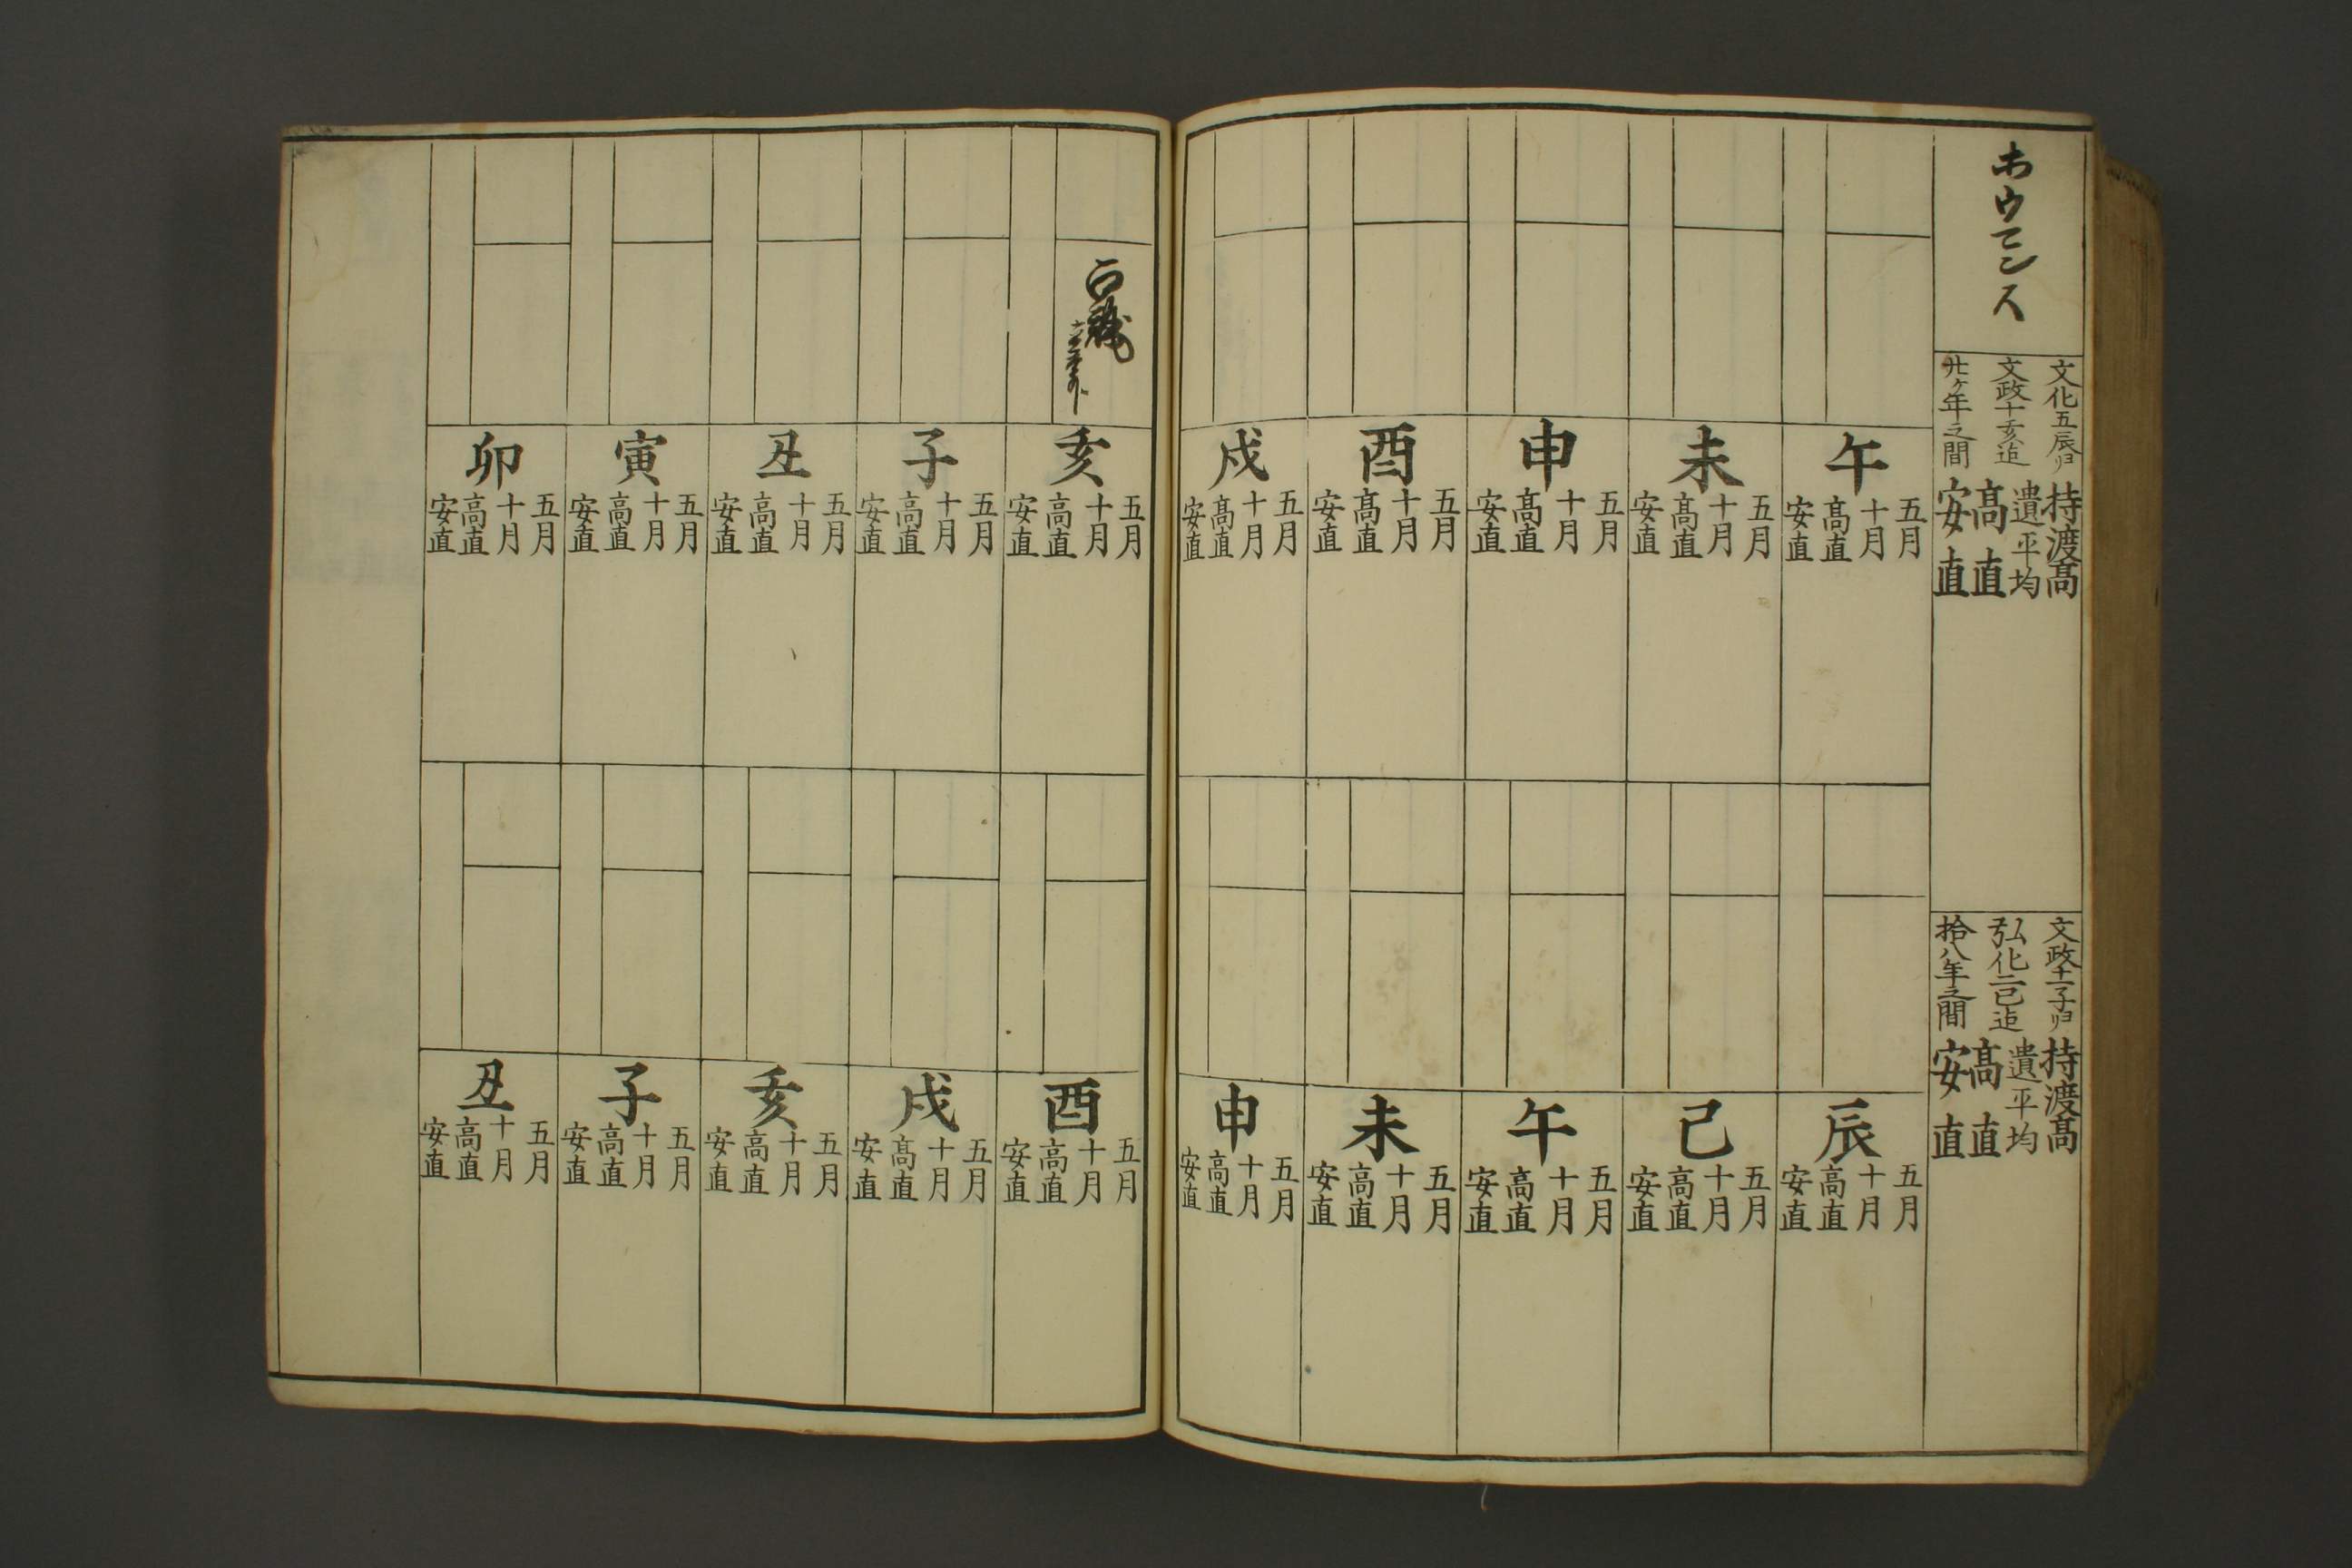 ホウテンス
文化五辰ヨリ
文政十亥迄
廿ケ年之間
持渡髙
遺平均
髙直
安直
文政十一子ヨリ
弘化二巳迄
拾八年之間
持渡髙
遺平均
髙直
安直
午
五月
十月
髙直
安直
未
五月
十月
髙直
安直
申
五月
十月
髙直
安直
酉
五月
十月
髙直
安直
戌
五月
十月
髙直
安直
辰
五月
十月
髙直
安直
巳
五月
十月
髙直
安直
午
五月
十月
髙直
安直
未
五月
十月
髙直
安直
申
五月
十月
髙直
安直
亥
五月
十月
髙直
安直
子
五月
十月
髙直
安直
丑
五月
十月
髙直
安直
寅
五月
十月
髙直
安直
卯
五月
十月
髙直
安直
酉
五月
十月
髙直
安直
戌
五月
十月
髙直
安直
亥
五月
十月
髙直
安直
子
五月
十月
髙直
安直
丑
五月
十月
髙直
安直